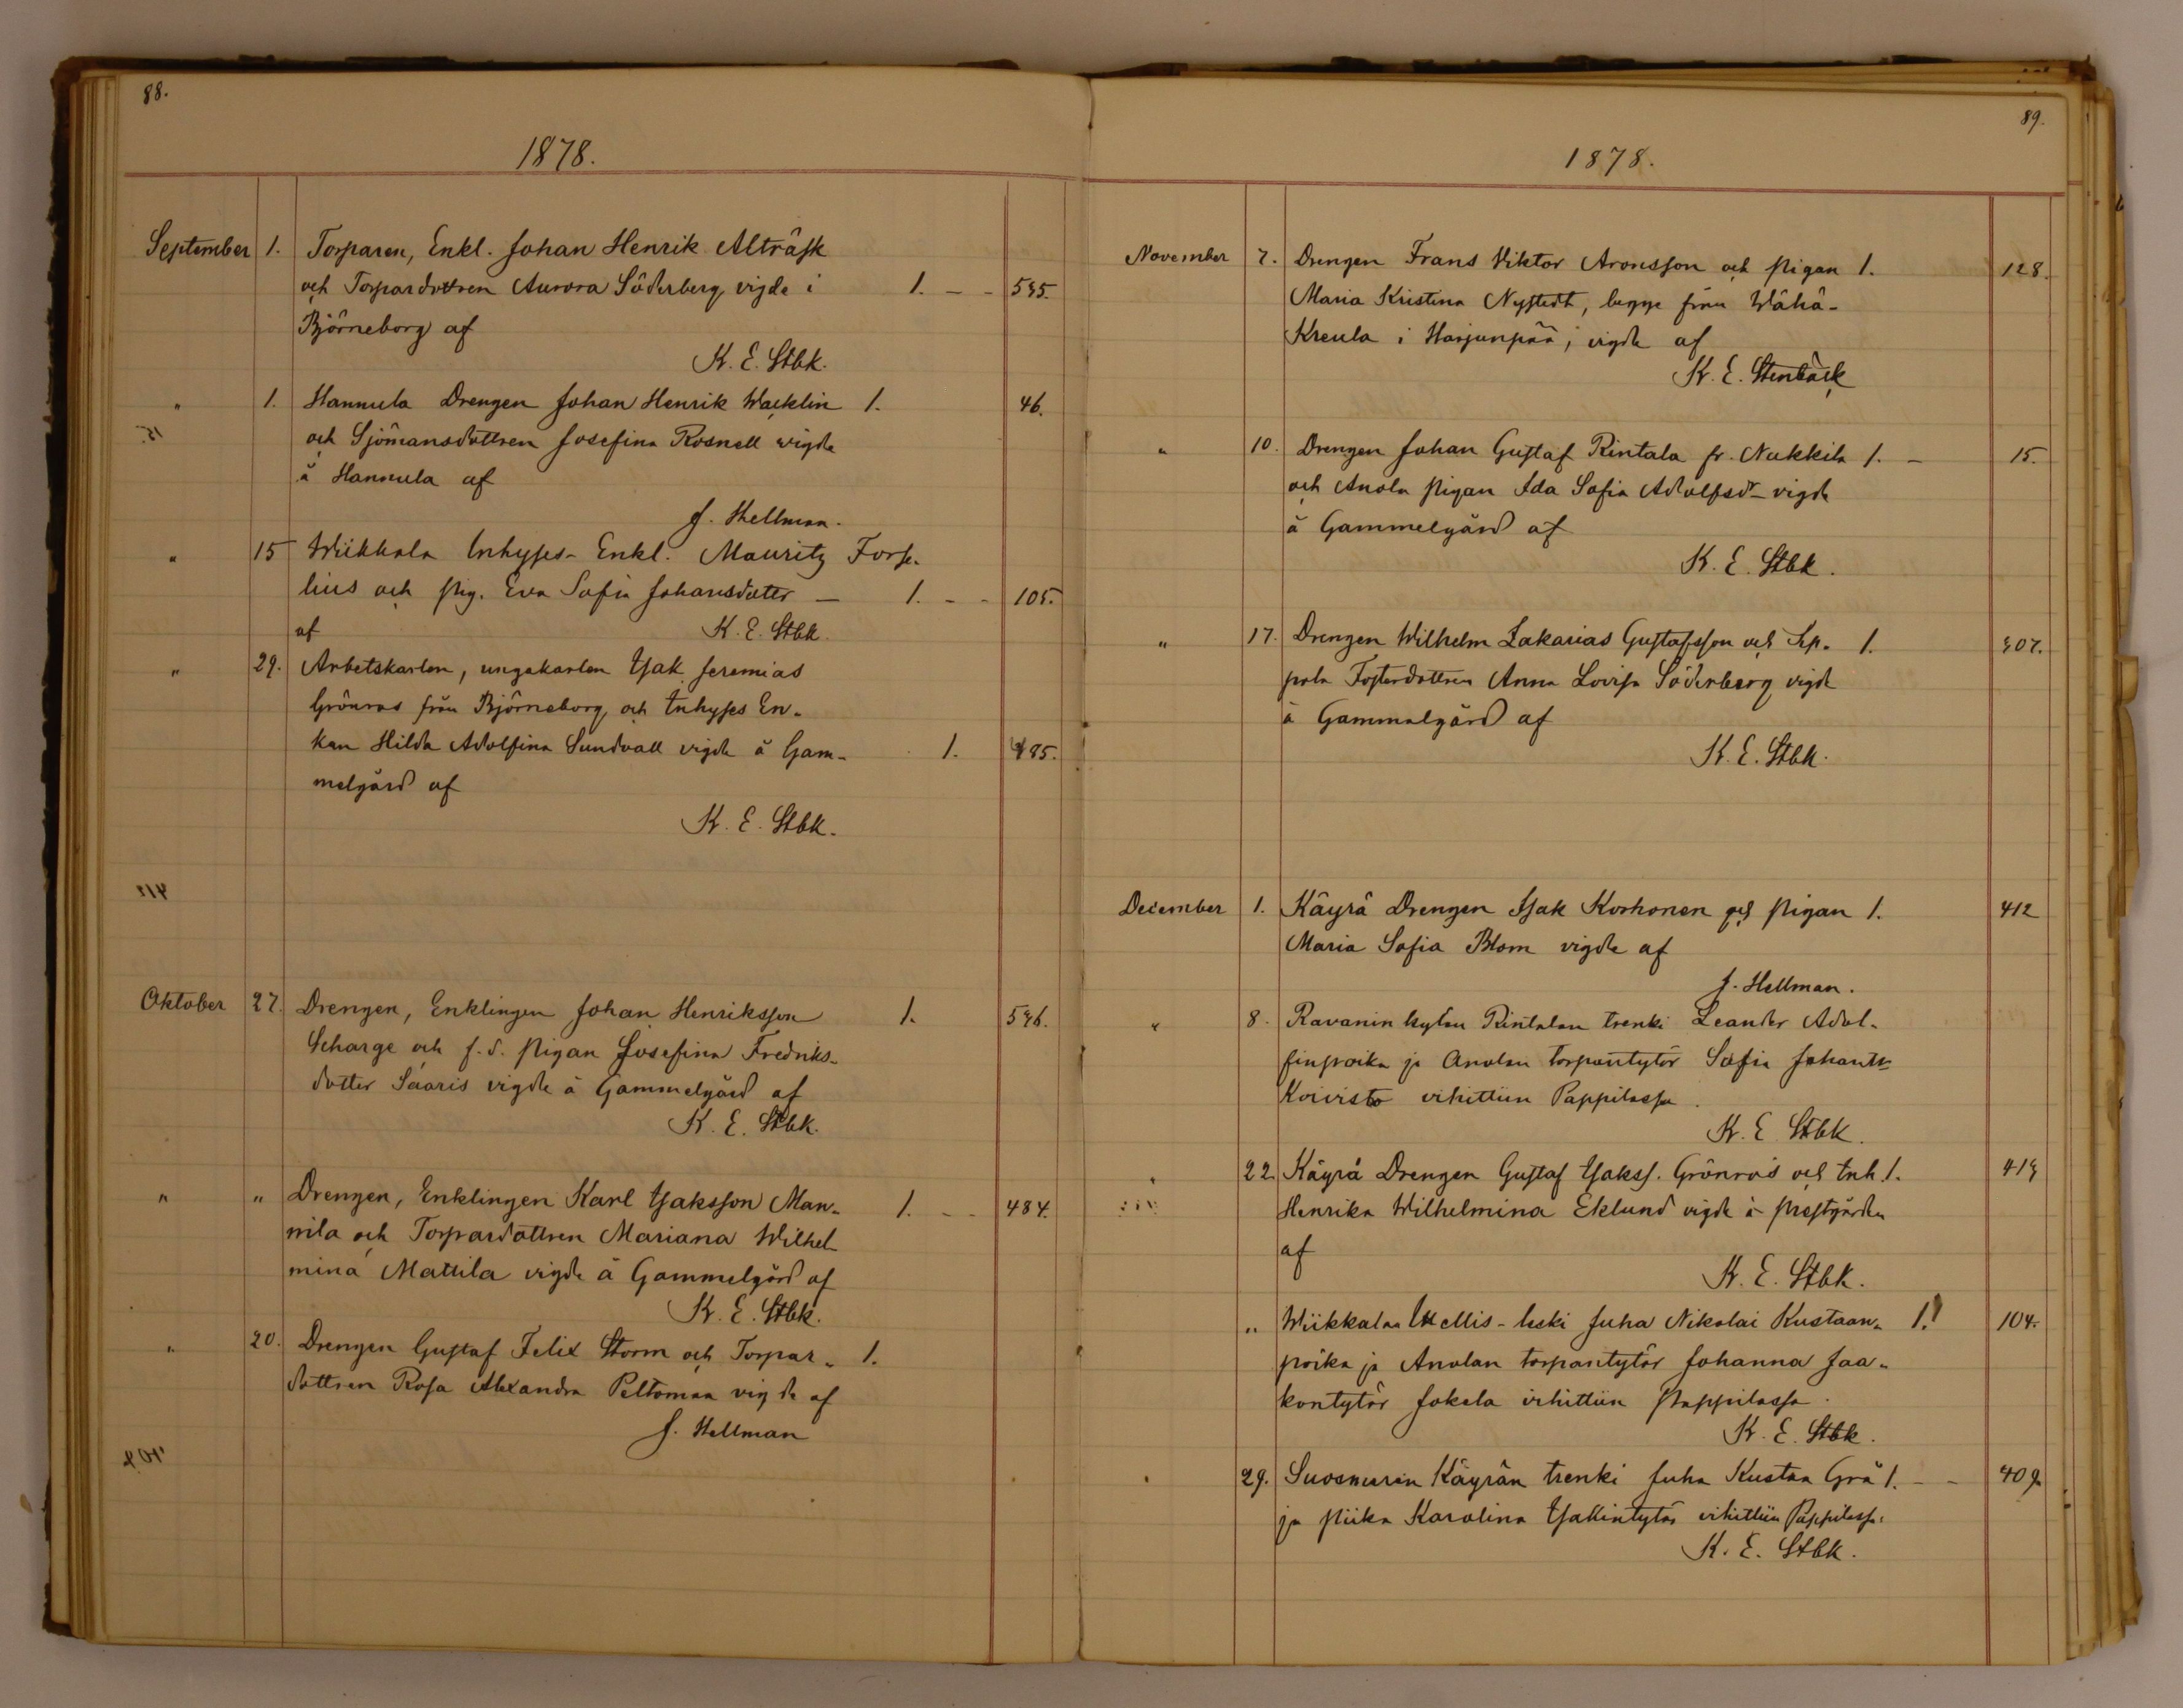 88.
1878.
September 1. Torparen, Enkl. Johan Henrik Alträsk
och Torpardottren Aurora Söderberg vigde i 1. - - 535.
Björneborg af
K. E. Stbk.
" 1. Hannula Drengen Johan Henrik Wacklin 1. 46.
och Sjömansdottren Josefina Rosnell vigde
å Hannula af
J. Hellman.
" 15 Wiikkala Inhyses-Enkl. Mauritz Forse-
lius och pig. Eva Sofia Johansdotter - 1. - - 105.
af K. E. Stbk.
" 29. Arbetskarlen, ungakarlen Isak Jeremias
Grönroos från Björneborg och Inhyses En-
kan Hilda Adolfina Sundvall vigde å Gam- 1. 495.
melgård af
K. E. Stbk.
Oktober 27. Drengen, Enklingen Johan Henriksson 1. 576.
Scharge och f.d. pigan Josefina Fredriks-
dotter Saaris vigde å Gammelgård af
K. E. Stbk.
" " Drengen, Enklingen Karl Isaksson Man- 1. - - 484.
nila och Torpardottren Mariana Wilhel-
mina Mattila vigde å Gammelgård af
K. E. Stbk.
" 20. Drengen Gustaf Felix Storm och Torpar- 1.
dottren Rosa Alexandra Peltomaa vigde af
J. Hellman
89.
1878.
November 7. Drengen Frans Viktor Aronsson och pigan 1. 128.
Maria Kristina Nystedt, begge från Wähä-
Kreula i Harjunpää, vigde af
K. E. Stenbäck
" 10. Drengen Johan Gustaf Rintala fr. Nukkila 1. - 15.
och Anola pigan Ida Sofia Adolfsdr vigde
å Gammelgård af
K. E. Stbk.
" 17. Drengen Wilhelm Zakarias Gustafsson och Sep- 1. 307.
pola Fosterdottren Anna Lovisa Söderberg vigde
å Gammalgård af
K. E. Stbk.
December 1. Käyrä Drengen Isak Korhonen och pigan 1. 412
Maria Sofia Blom vigde af
J. Hellman.
" 8. Ravanin kylän Rintalan trenki Leander Adol-
finpoika ja Anolan torpantytör Sofia Johantr
Koivisto vihittiin Pappilassa.
K. E. Stbk.
" 22. Käyrä Drengen Gustaf Isakss. Grönroos och Inh. 1. 413
Henrika Wilhelmina Eklund vigde å prestgården
af
K. E. Stbk.
" Wiikkalan Itellis-leski Juha Nikolai Kustaan- 1. 104.
poika ja Anolan torpantytör Johanna Jaa-
kontytör Jokela vihittiin Pappilassa.
K. E. Stbk.
29. Suosmeren Käyrän trenki Juha Kustaa Grä 1. - - 409.
ja piika Karolina Isakintytör vihittiin Pappilassa.
K. E. Stbk.